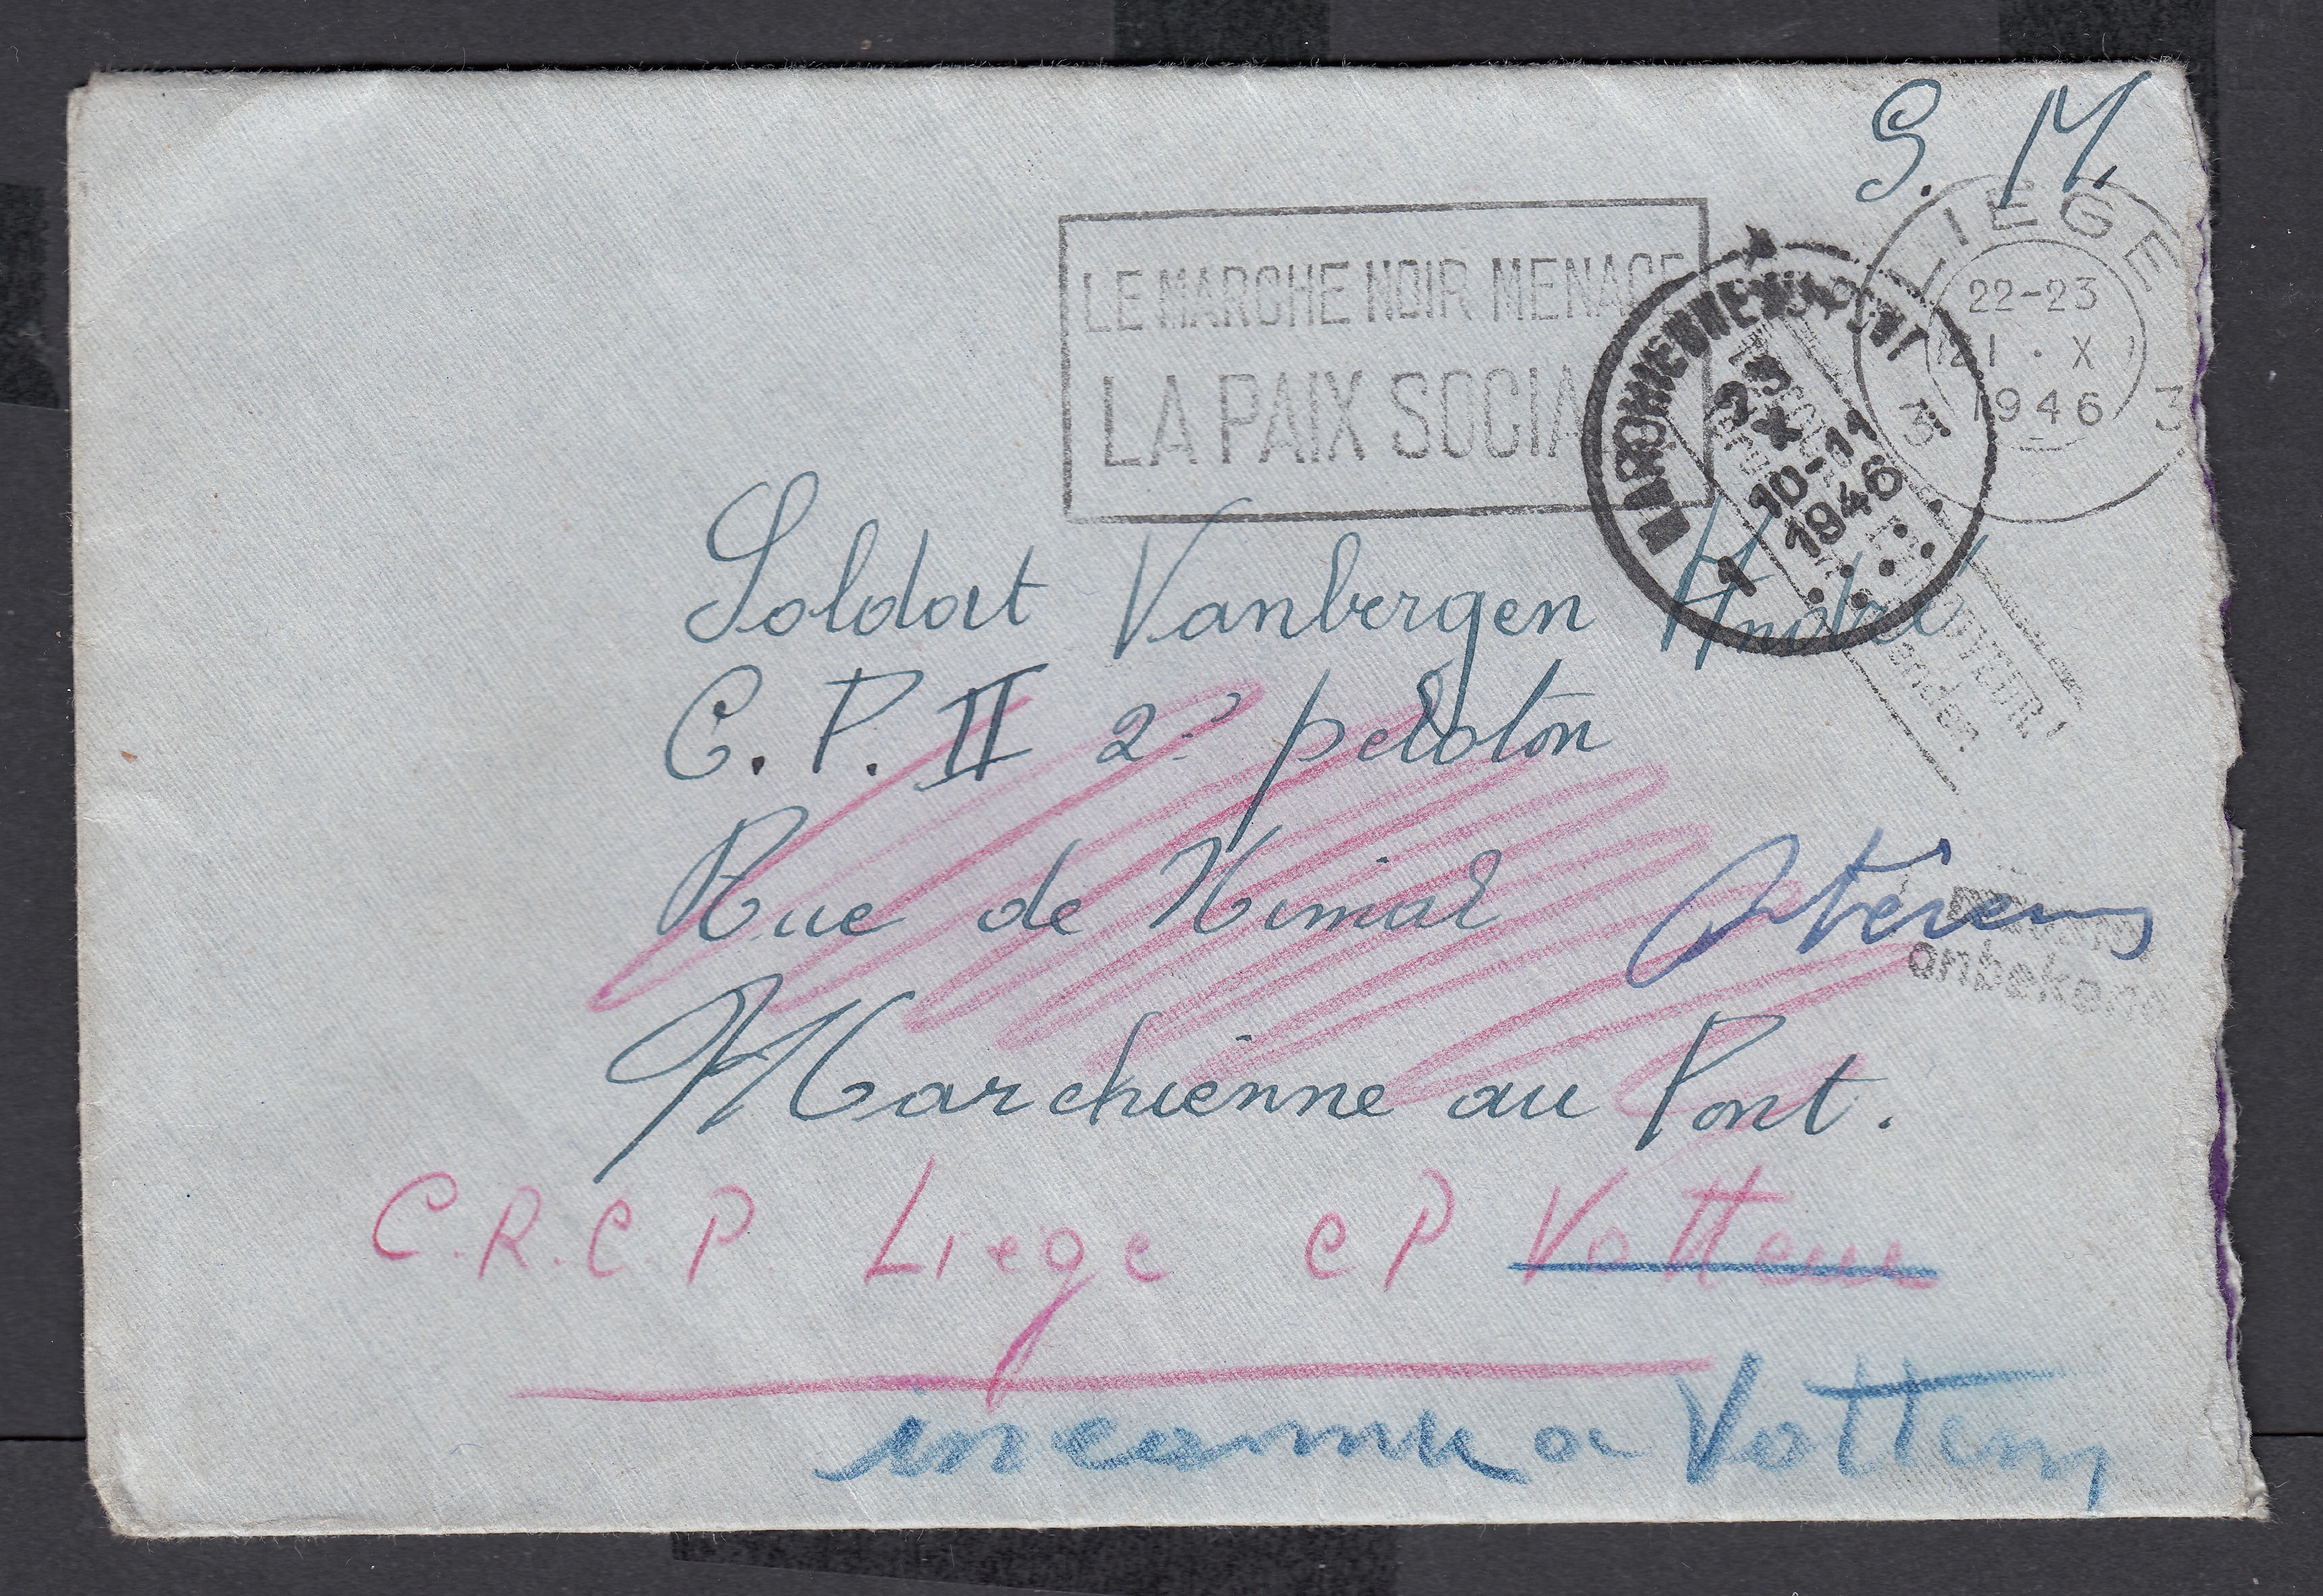 S. M.
LE MARCHE NOIR MENACE
LA PAIX SOCIA
LIEGE
22-23
21 . X
1946
3 3
MARCHIENNE-AU-PONT
10 1946
1
RETOUR A L'ENVOYEUR!
Soldat Vanbergen André
C. P. II 2e peloton
Rue de
onbekend
Marchienne au Pont.
C.R.C.P. Liege CP Vottem
inconnu a Vottem